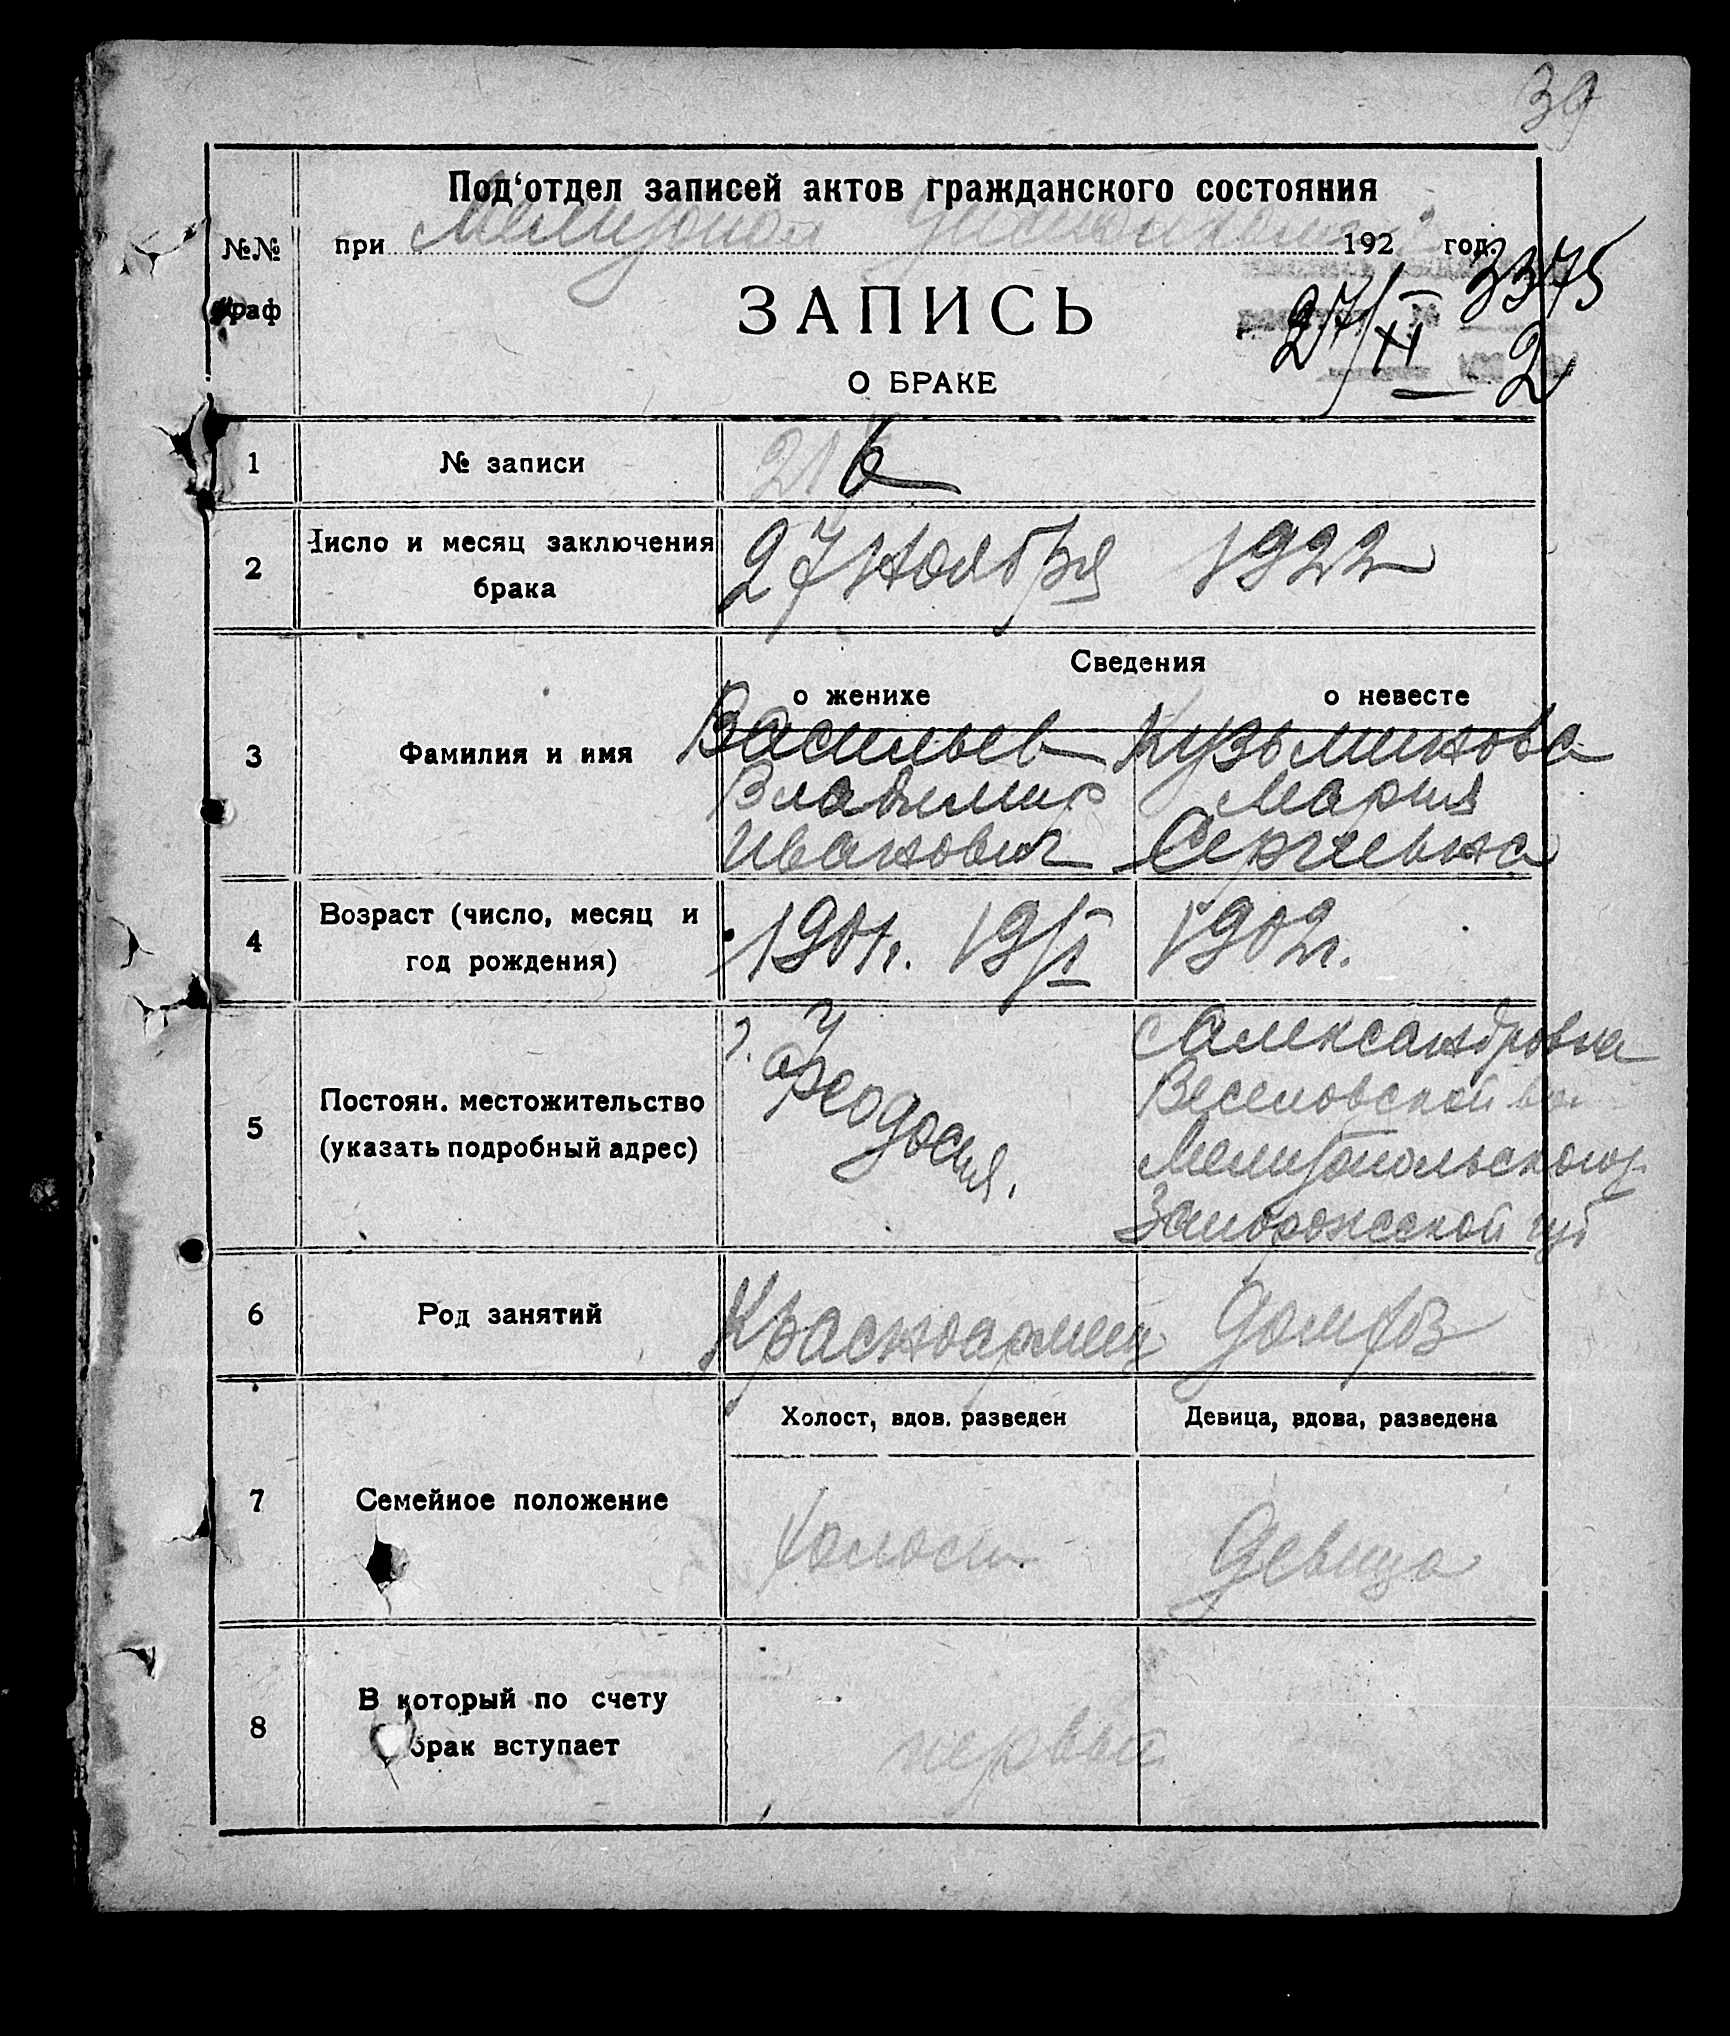 39
Под'отдел записей актов гражданского состояния
при 192 год.
№№ граф
3375
ЗАПИСЬ
27/XI 2
О БРАКЕ
1 № записи 6
2 Число и месяц заключения брака 27 Ноября 1922
Сведения
о женихе о невесте
3 Фамилия и имя
Васильев Кузьминова
Владимир Мария
Иванович Сергеевна
4 Возраст (число, месяц и год рождения) 1901г. 19/I 1902г.
5 Постоян. местожительство (указать подробный адрес)
г. Феодосия.
с Александровка
Веселовской
Мелитопольского у
Запорожской губ
6 Род занятий Красноармеец
Холост, вдов. разведен Девица, вдова, разведена
7 Семейное положение Холост Девица
8 В который по счету брак вступает первый